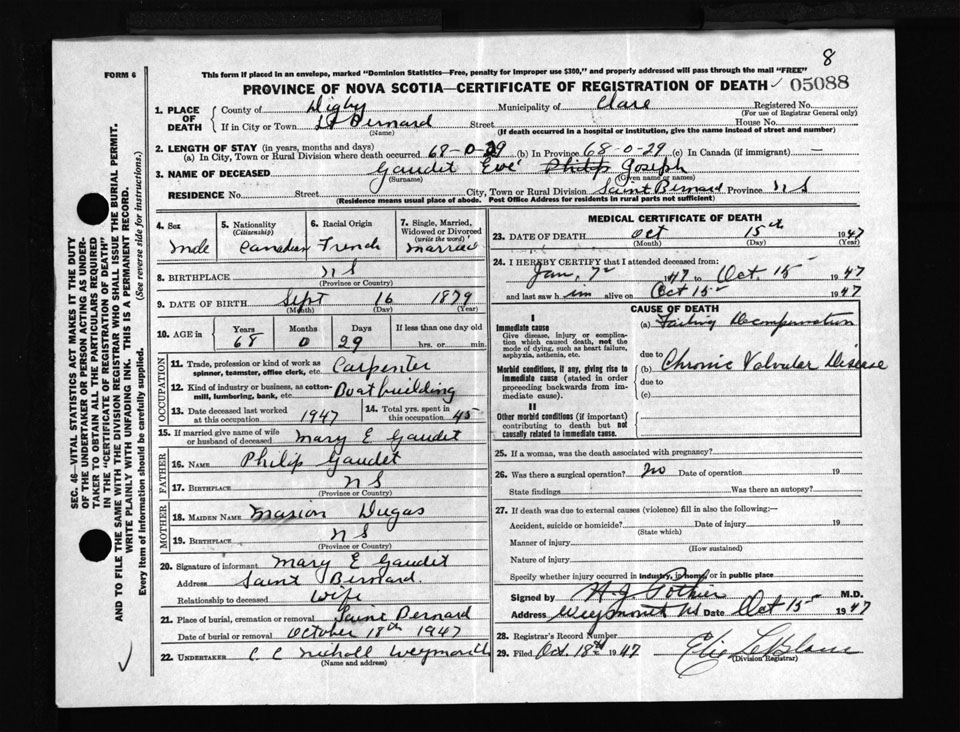 8
FORM 6
This form if placed in an envelope, marked "Dominion Statistics—Free, penalty for improper use $300," and properly addressed will pass through the mail "FREE"
PROVINCE OF NOVA SCOTIA—CERTIFICATE OF REGISTRATION OF DEATH 05088
1. PLACE OF DEATH County of Digby Municipality of Clare Registered No.
(For use of Registrar General only)
If in City or Town St Bernard Street House No.
(Name) (If death occurred in a hospital or institution, give the name instead of street and number)
2. LENGTH OF STAY (in years, months and days)
(a) In City, Town or Rural Division where death occurred 68-0-29 (b) In Province 68-0-29 (c) In Canada (if immigrant) —
3. NAME OF DECEASED Gaudet Eve Philip Joseph
(Surname) (Given name or names)
RESIDENCE No. Street City, Town or Rural Division Saint Bernard Province N S
(Residence means usual place of abode. Post Office Address for residents in rural parts not sufficient)
4. Sex Male
5. Nationality (Citizenship) Canadian
6. Racial Origin French
7. Single, Married, Widowed or Divorced (write the word) Married
8. BIRTHPLACE N S
(Province or Country)
9. DATE OF BIRTH Sept 16 1879
(Month) (Day) (Year)
10. AGE in Years 68 Months 0 Days 29 If less than one day old hrs. or min.
OCCUPATION
11. Trade, profession or kind of work as spinner, teamster, office clerk, etc. Carpenter
12. Kind of industry or business, as cotton-mill, lumbering, bank, etc. Boatbuilding
13. Date deceased last worked at this occupation 1947
14. Total yrs. spent in this occupation 45
15. If married give name of wife or husband of deceased Mary E Gaudet
FATHER
16. NAME Philip Gaudet
17. BIRTHPLACE N S
(Province or Country)
MOTHER
18. MAIDEN NAME Marion Dugas
19. BIRTHPLACE N S
(Province or Country)
20. Signature of informant Mary E Gaudet
Address Saint Bernard.
Relationship to deceased Wife
21. Place of burial, cremation or removal Saint Bernard
Date of burial or removal October 18th 1947
22. UNDERTAKER C C Nicholl Weymouth
(Name and address)
MEDICAL CERTIFICATE OF DEATH
23. DATE OF DEATH Oct 15th 1947
(Month) (Day) (Year)
24. I HEREBY CERTIFY that I attended deceased from:
Jan, 7th 1947 to Oct 15 1947
and last saw him alive on Oct 15 1947
CAUSE OF DEATH
I
Immediate cause
Give disease, injury or complication which caused death, not the mode of dying, such as heart failure, asphyxia, asthenia, etc.
(a) Failing Decompensation
due to
Morbid conditions, if any, giving rise to immediate cause (stated in order proceeding backwards from immediate cause).
(b) Chronic Valvular Disease
due to
(c)
II
Other morbid conditions (if important) contributing to death but not causally related to immediate cause.
25. If a woman, was the death associated with pregnancy?
26. Was there a surgical operation? no Date of operation 19
State findings Was there an autopsy?
27. If death was due to external causes (violence) fill in also the following:—
Accident, suicide or homicide? Date of injury 19
(State which)
Manner of injury
(How sustained)
Nature of injury
Specify whether injury occurred in industry, in home, or in public place
Signed by H. J. Pothier M.D.
Address Weymouth NS Date Oct 15 1947
28. Registrar's Record Number
29. Filed Oct. 18th 1947 Elie LeBlanc
(Division Registrar)
SEC. 46—VITAL STATISTICS ACT MAKES IT THE DUTY
OF THE UNDERTAKER OR PERSON ACTING AS UNDER-
TAKER TO OBTAIN ALL THE PARTICULARS REQUIRED
IN THE "CERTIFICATE OF REGISTRATION OF DEATH"
AND TO FILE THE SAME WITH THE DIVISION REGISTRAR WHO SHALL ISSUE THE BURIAL PERMIT.
WRITE PLAINLY WITH UNFADING INK. THIS IS A PERMANENT RECORD.
Every item of information should be carefully supplied. (See reverse side for instructions.)